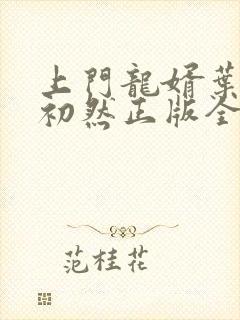 上門龍婿葉
初然正版全
范桂花